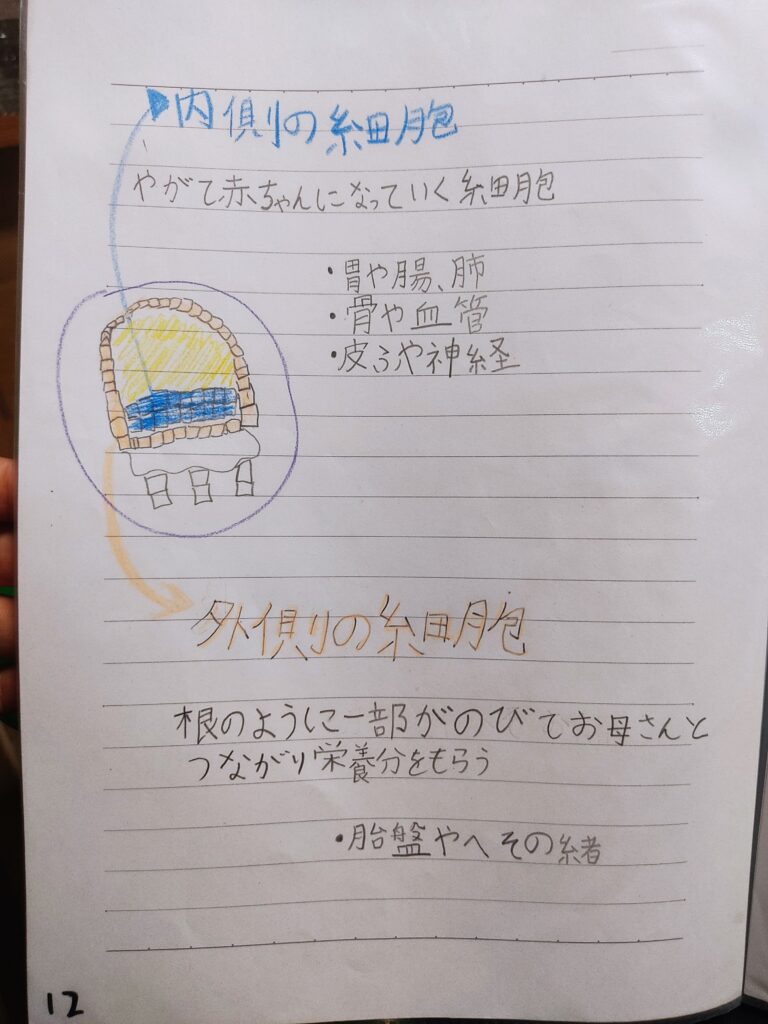 内側の細胞
やがて赤ちゃんになっていく細胞
・胃や腸、肺
・骨や血管
・皮ふや神経
外側の細胞
根のように一部がのびてお母さんと
つながり栄養分をもらう
・胎盤やへその緒
12